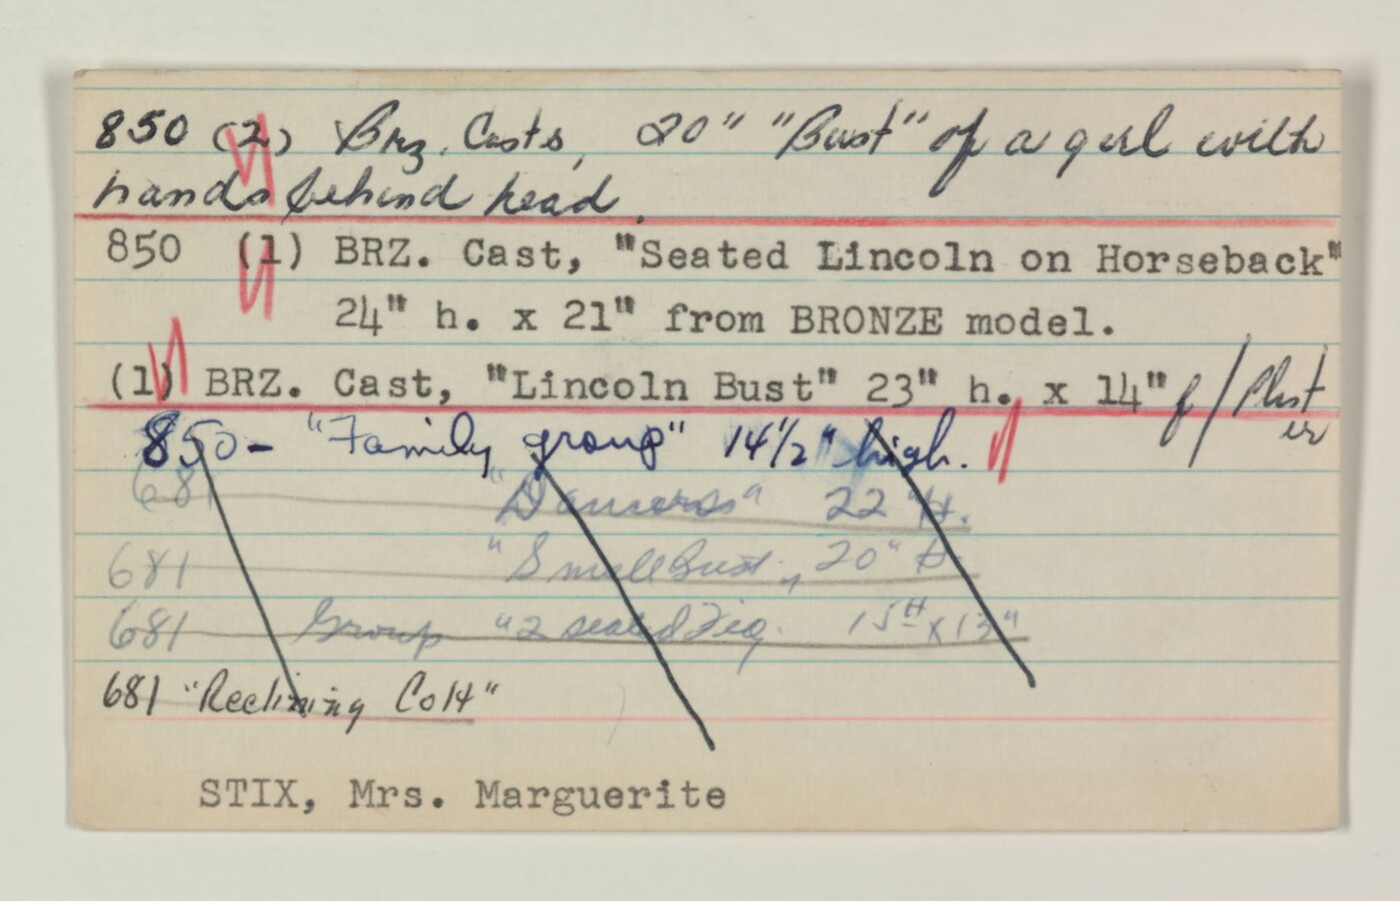 850 (2) Brz. Casts, 20" "Bust" of a girl with
hands behind head.
850 (1) BRZ. Cast, "Seated Lincoln on Horseback"
24" h. x 21" from BRONZE model.
(1) BRZ. Cast, "Lincoln Bust" 23" h. x 14" f/Plast
er
850 - "Family group" 14 1/2" high.
681 "Dancers" 22" H.
681 "Small Bust., 20" H.
681 Group "2 seated Fig. 15H x 13"
681 "Reclining Colt"
STIX, Mrs. Marguerite